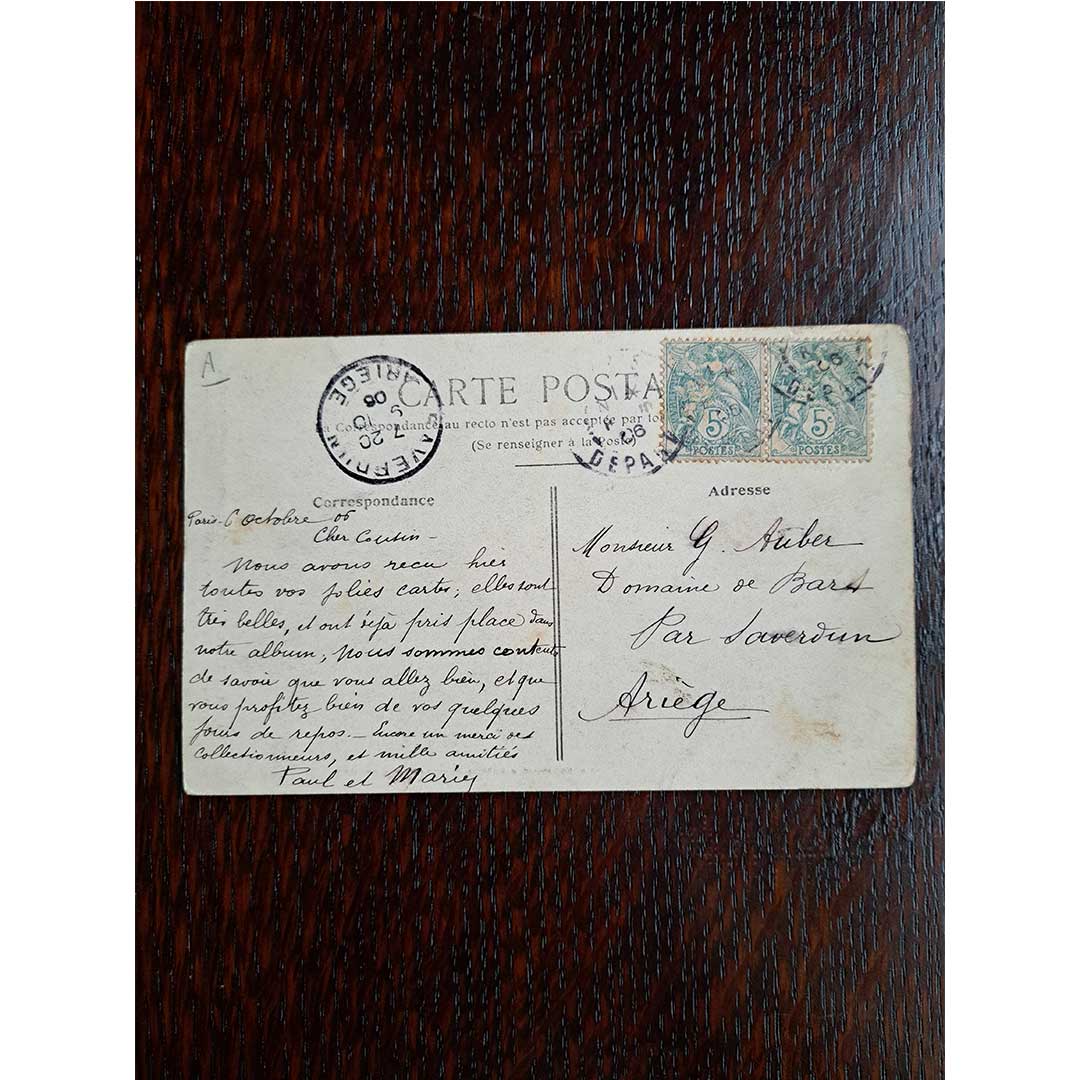 A
CARTE POSTA
La Correspondance au recto n'est pas acceptée par to
(Se renseigner à la Poste)
SAVERDUN
ARIEGE
7 20
9 10
06
06
DEPA
DEP
5c
POSTES
5c
POSTES
Correspondance
Paris 6 Octobre 06
Cher Cousin -
Nous avons recu hier
toutes vos jolies cartes; elles sont
très belles, et ont déjà pris place dans
notre album; nous sommes contents
de savoir que vous allez bien, et que
vous profitez bien de vos quelques
jours de repos. - Encore un merci des
collectionneurs, et mille amitiés
Paul et Marie
Adresse
Monsieur G. Auber
Domaine de Bars
Par Saverdun
Ariège